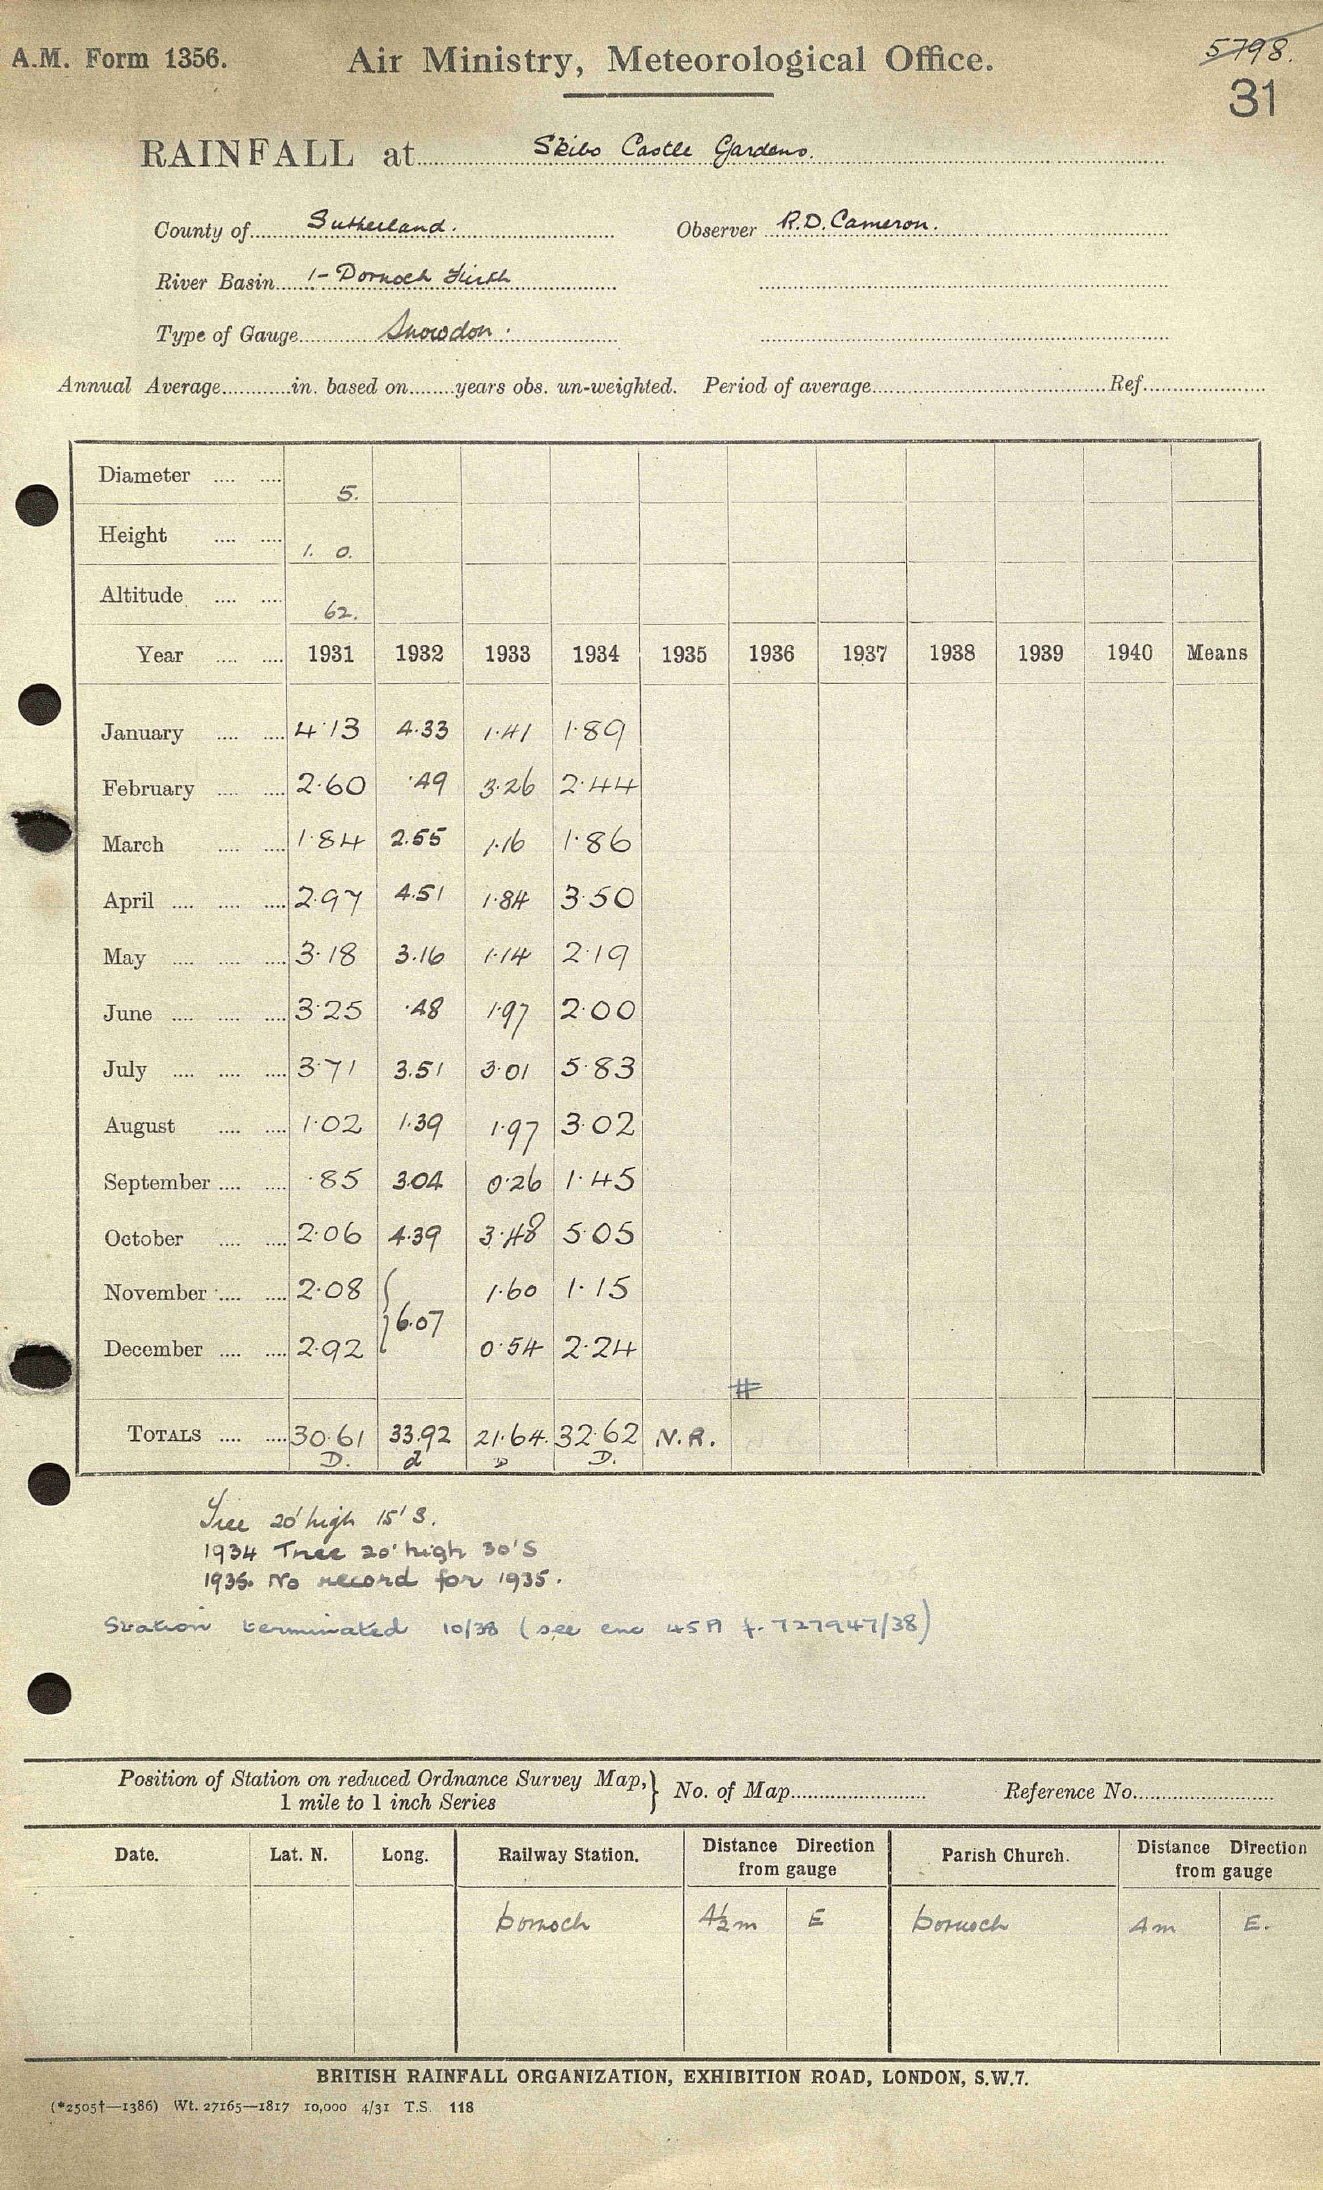 A.M. Form 1356. Air Ministry, Meteorological Office. 5798.
31
RAINFALL at Skibo Castle Gardens.
County of Sutherland. Observer R.D. Cameron.
River Basin 1- Dornoch Firth
Type of Gauge Snowdon.
Annual Average in. based on years obs. un-weighted. Period of average Ref.
Diameter 5.
Height 1. 0.
Altitude 62.
Year 1931 1932 1933 1934 1935 1936 1937 1938 1939 1940 Means
January 4·13 4.33 1·41 1·89
February 2·60 ·49 3·26 2·44
March 1·84 2.55 1·16 1·86
April 2·97 4.51 1·84 3·50
May 3·18 3.16 1·14 2·19
June 3·25 ·48 1·97 2·00
July 3·71 3.51 3·01 5·83
August 1·02 1.39 1·97 3·02
September ·85 3.04 0·26 1·45
October 2·06 4.39 3·48 5·05
November 2·08 1·60 1·15
6.07
December 2·92 0·54 2·24
#
TOTALS 30·61 33.92 21·64 32·62 N.R.
D. d D D.
Tree 20' high 15' S.
1934 Tree 20' high 30' S
1935. No record for 1935.
Station terminated 10/38 (see enc 45A f. 727947/38)
Position of Station on reduced Ordnance Survey Map, 1 mile to 1 inch Series } No. of Map Reference No.
Date. Lat. N. Long. Railway Station. Distance Direction from gauge Parish Church. Distance Direction from gauge
Dornoch 4½ m E Dornoch 4 m E.
BRITISH RAINFALL ORGANIZATION, EXHIBITION ROAD, LONDON, S.W.7.
(*2505†—1386) Wt. 27165—1817 10,000 4/31 T.S. 118